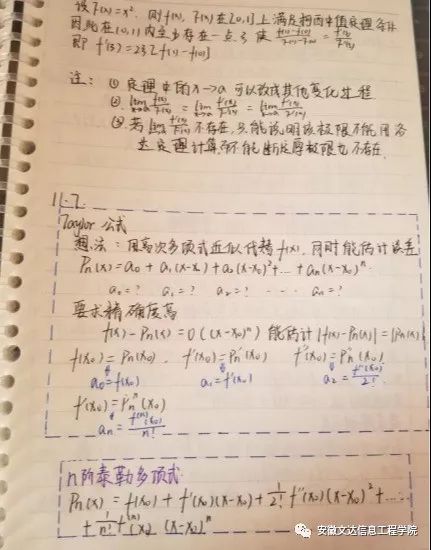 设F(x)=x², 则f(x), F(x)在[0,1]上满足柯西中值定理条件
因此在(0,1)内至少存在一点ξ使 \frac{f(1)-f(0)}{F(1)-F(0)} = \frac{f'(ξ)}{F'(ξ)}
即 f'(ξ)=2ξ[f(1)-f(0)]
注: ① 定理中的x→a 可以改成其他变化过程
② \lim_{x→a} \frac{f(x)}{F(x)} = \lim_{x→a} \frac{f'(x)}{F'(x)} = \lim_{x→a} \frac{f''(x)}{F''(x)}
③ 若 \lim \frac{f'(x)}{F'(x)} 不存在,只能说明该极限不能用洛
达定理计算,不能断定原极限也不存在.
11.7.
Taylor 公式
想法: 用高次多项式近似代替f(x), 同时能估计误差
Pn(x)=a₀+a₁(x-x₀)+a₂(x-x₀)²+...+an(x-x₀)ⁿ
a₀=? a₁=? a₂=? ... an=?
要求精确度高
f(x)-Pn(x)=o((x-x₀)ⁿ) 能估计 |f(x)-Pn(x)|=|Rn(x)|
f(x₀)=Pn(x₀). f'(x₀)=Pn'(x₀) f''(x₀)=Pn''(x₀)
a₀=f(x₀) a₁=f'(x₀) a₂=\frac{f''(x₀)}{2!}
fⁿ(x₀)=Pnⁿ(x₀)
an=\frac{f^{(n)}(x₀)}{n!}
n阶泰勒多项式
Pn(x)=f(x₀)+f'(x₀)(x-x₀)+\frac{1}{2!}f''(x₀)(x-x₀)²+......
+\frac{1}{n!}f^{(n)}(x₀)(x-x₀)ⁿ
安徽文达信息工程学院